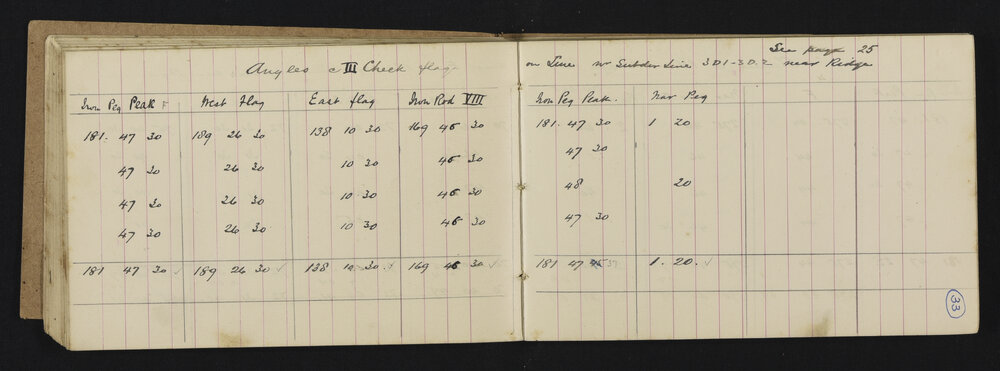 See page 25
Angles @ III Check flag
on Line nr Subdiv Line 3D1-3D.2 near Ridge
Iron Peg Peak West flag East flag Iron Rod VIII
181. 47 30 189 26 30 138 10 30 169 45 30
47 30 26 30 10 30 45 30
47 30 26 30 10 30 45 30
47 30 26 30 10 30 45 30
181 47 30 189 26 30 138 10 30 169 45 30
Iron Peg Peak. Peg
181. 47 30 1 20
47 30
48 20
47 30
181 47 37 1. 20.
33